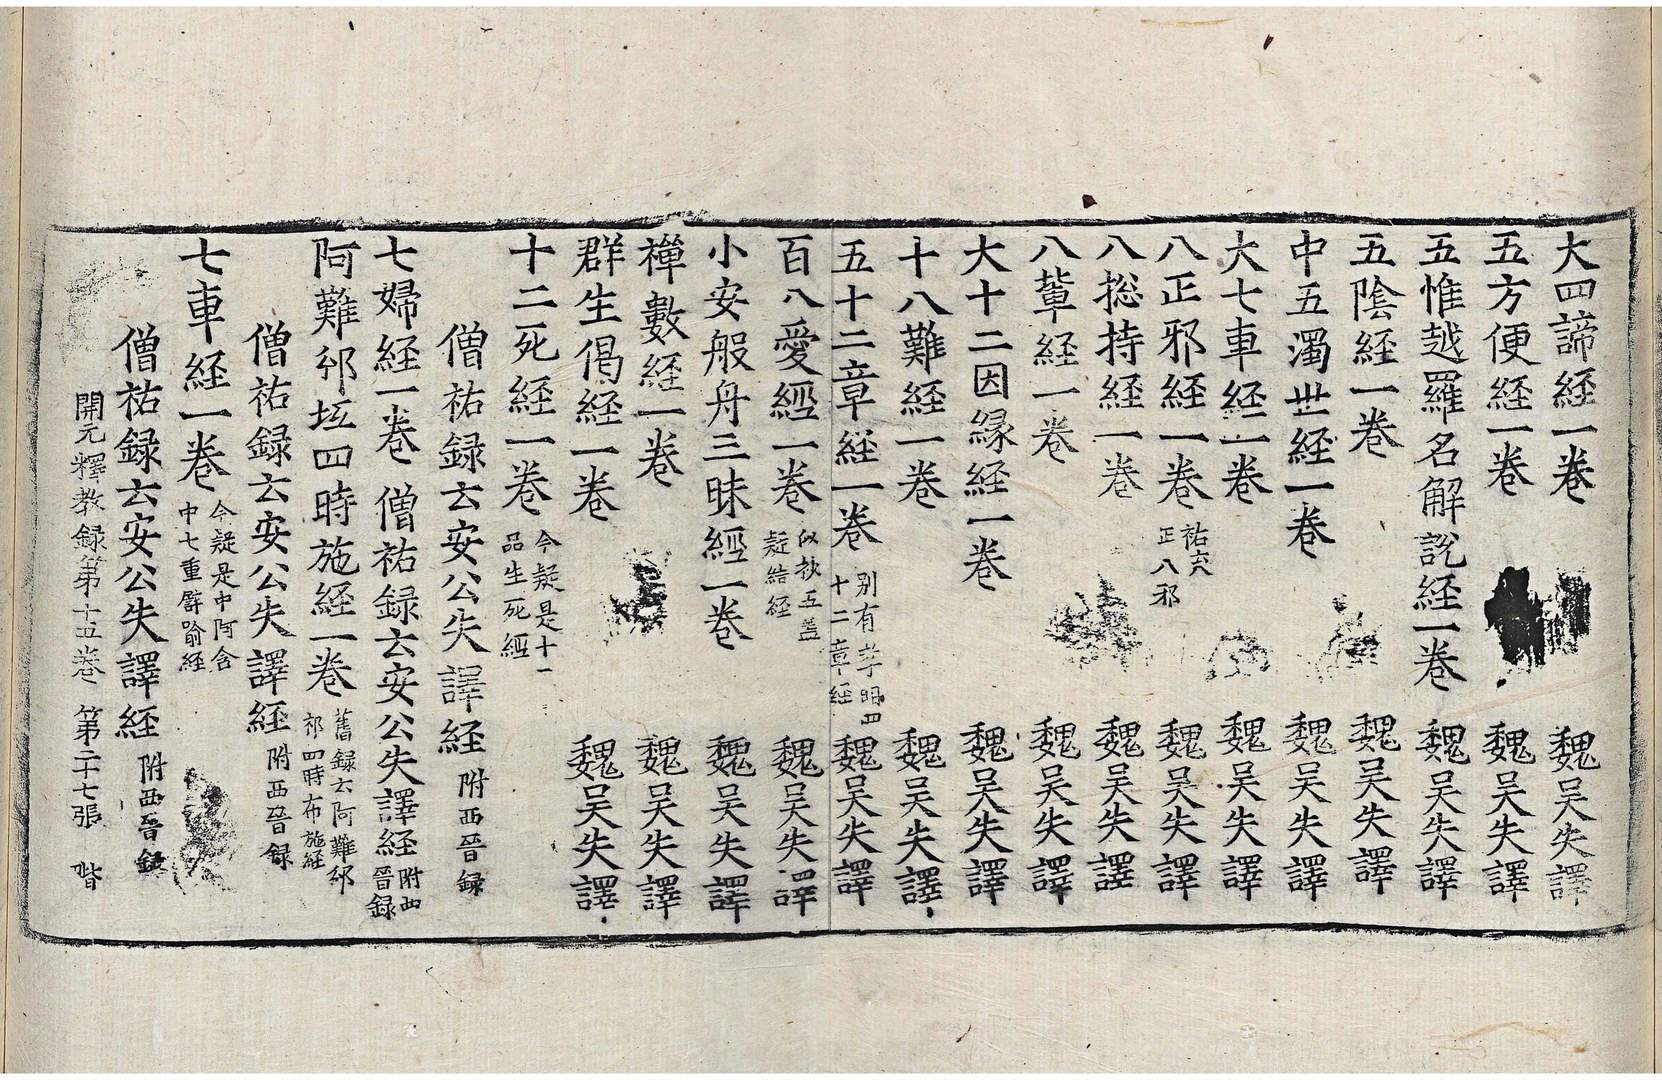 大四諦経一卷 魏吴失譯
五方便経一卷 魏吴失譯
五惟越羅名解説経一卷 魏吴失譯
五陰経一卷 魏吴失譯
中五濁世経一卷 魏吴失譯
大七車経一卷 魏吴失譯
八正邪経一卷 祐云八正八邪 魏吴失譯
八総持経一卷 魏吴失譯
八輩経一卷 魏吴失譯
大十二因縁経一卷 魏吴失譯
十八難経一卷 魏吴失譯
五十二章経一卷 别有孝明四十二章経 魏吴失譯
百八愛經一卷 似抄五盖疑結経 魏吴失譯
小安般舟三昧經一卷 魏吴失譯
禅數経一卷 魏吴失譯
群生偈経一卷 魏吴失譯
十二死経一卷 今疑是十一品生死經
僧祐録云安公失譯経 附西晉録
七婦経一卷 僧祐録云安公失譯経 附西晉録
阿難邠坻四時施経一卷 舊録云阿難邠祁四時布施経
僧祐録云安公失譯経 附西晉録
七車経一卷 今疑是中阿含中七重譬喻経
僧祐録云安公失譯経 附西晉録
開元釋教録第十五卷 第二十七張 階